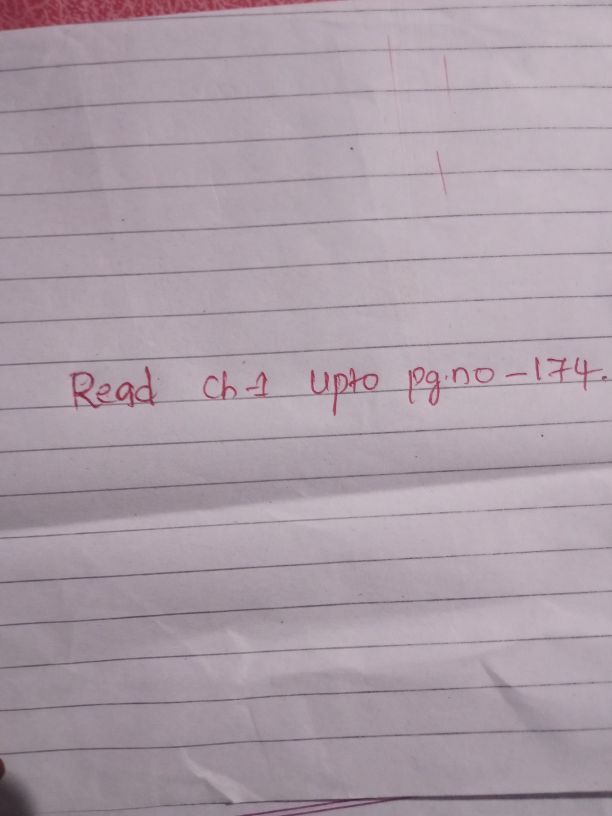 Read Ch-1 upto pg.no-174.